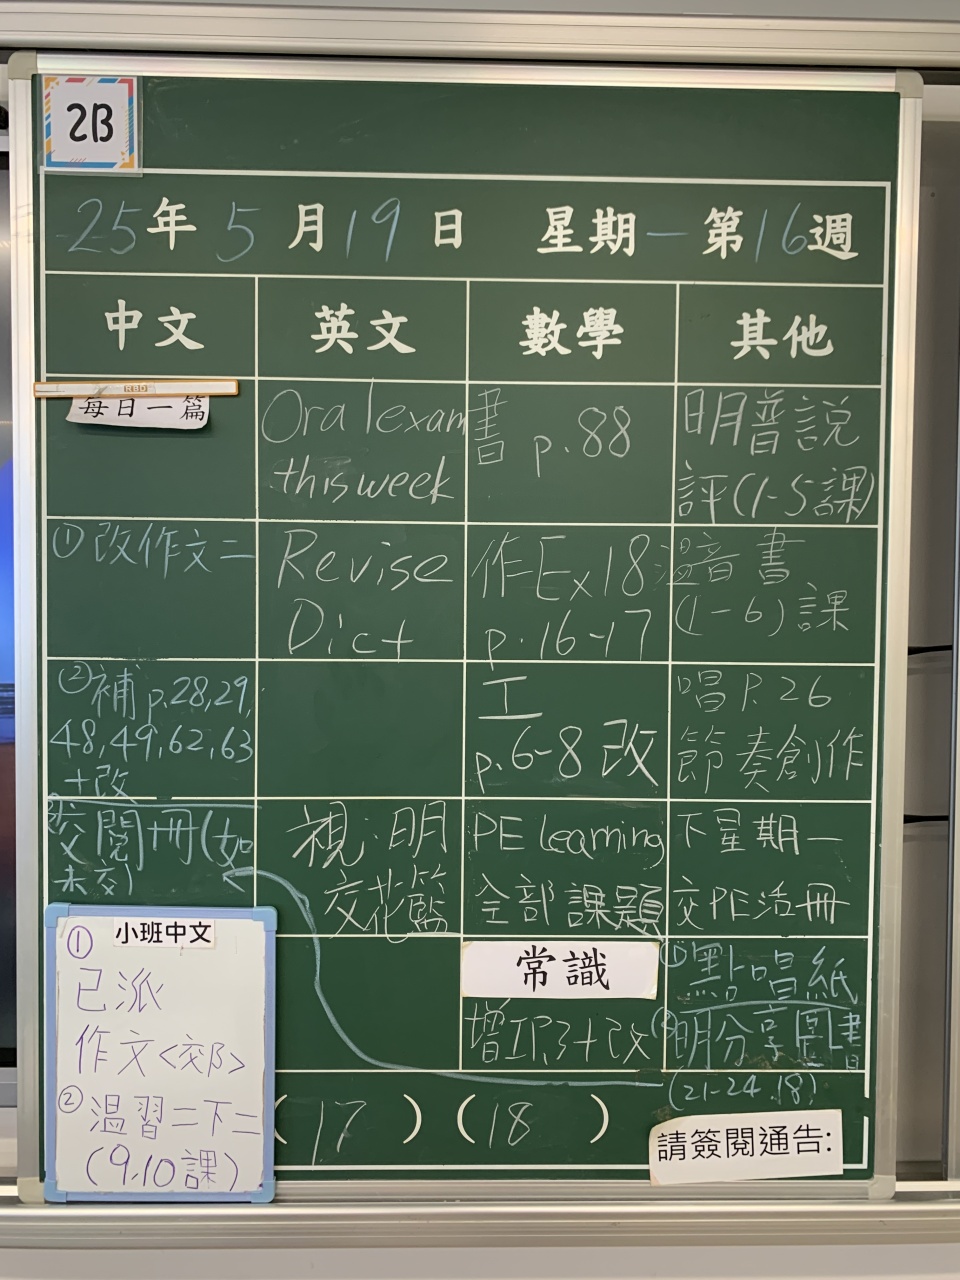 2B
25年5月19日 星期一 第16週
中文 英文 數學 其他
每日一篇
①改作文二
②補p.28,29,
48,49,62,63
+改
交閱冊(如
未交)
Oral exam
this week
Revise
Dict
視:明
交花籃
書 p.88
作Ex18
p.16-17
工
p.6-8 改
PE learning
全部課題
常識
增工P.3+改
明普說
評(1-5課)
溫音書
(1-6)課
唱P.26
節奏創作
下星期一
交PE活冊
①點唱紙
②明分享圖書
(21-24.18)
小班中文
①
已派
作文<郊>
②溫習二下二
(9,10課)
(17) (18)
請簽閱通告:
KBD